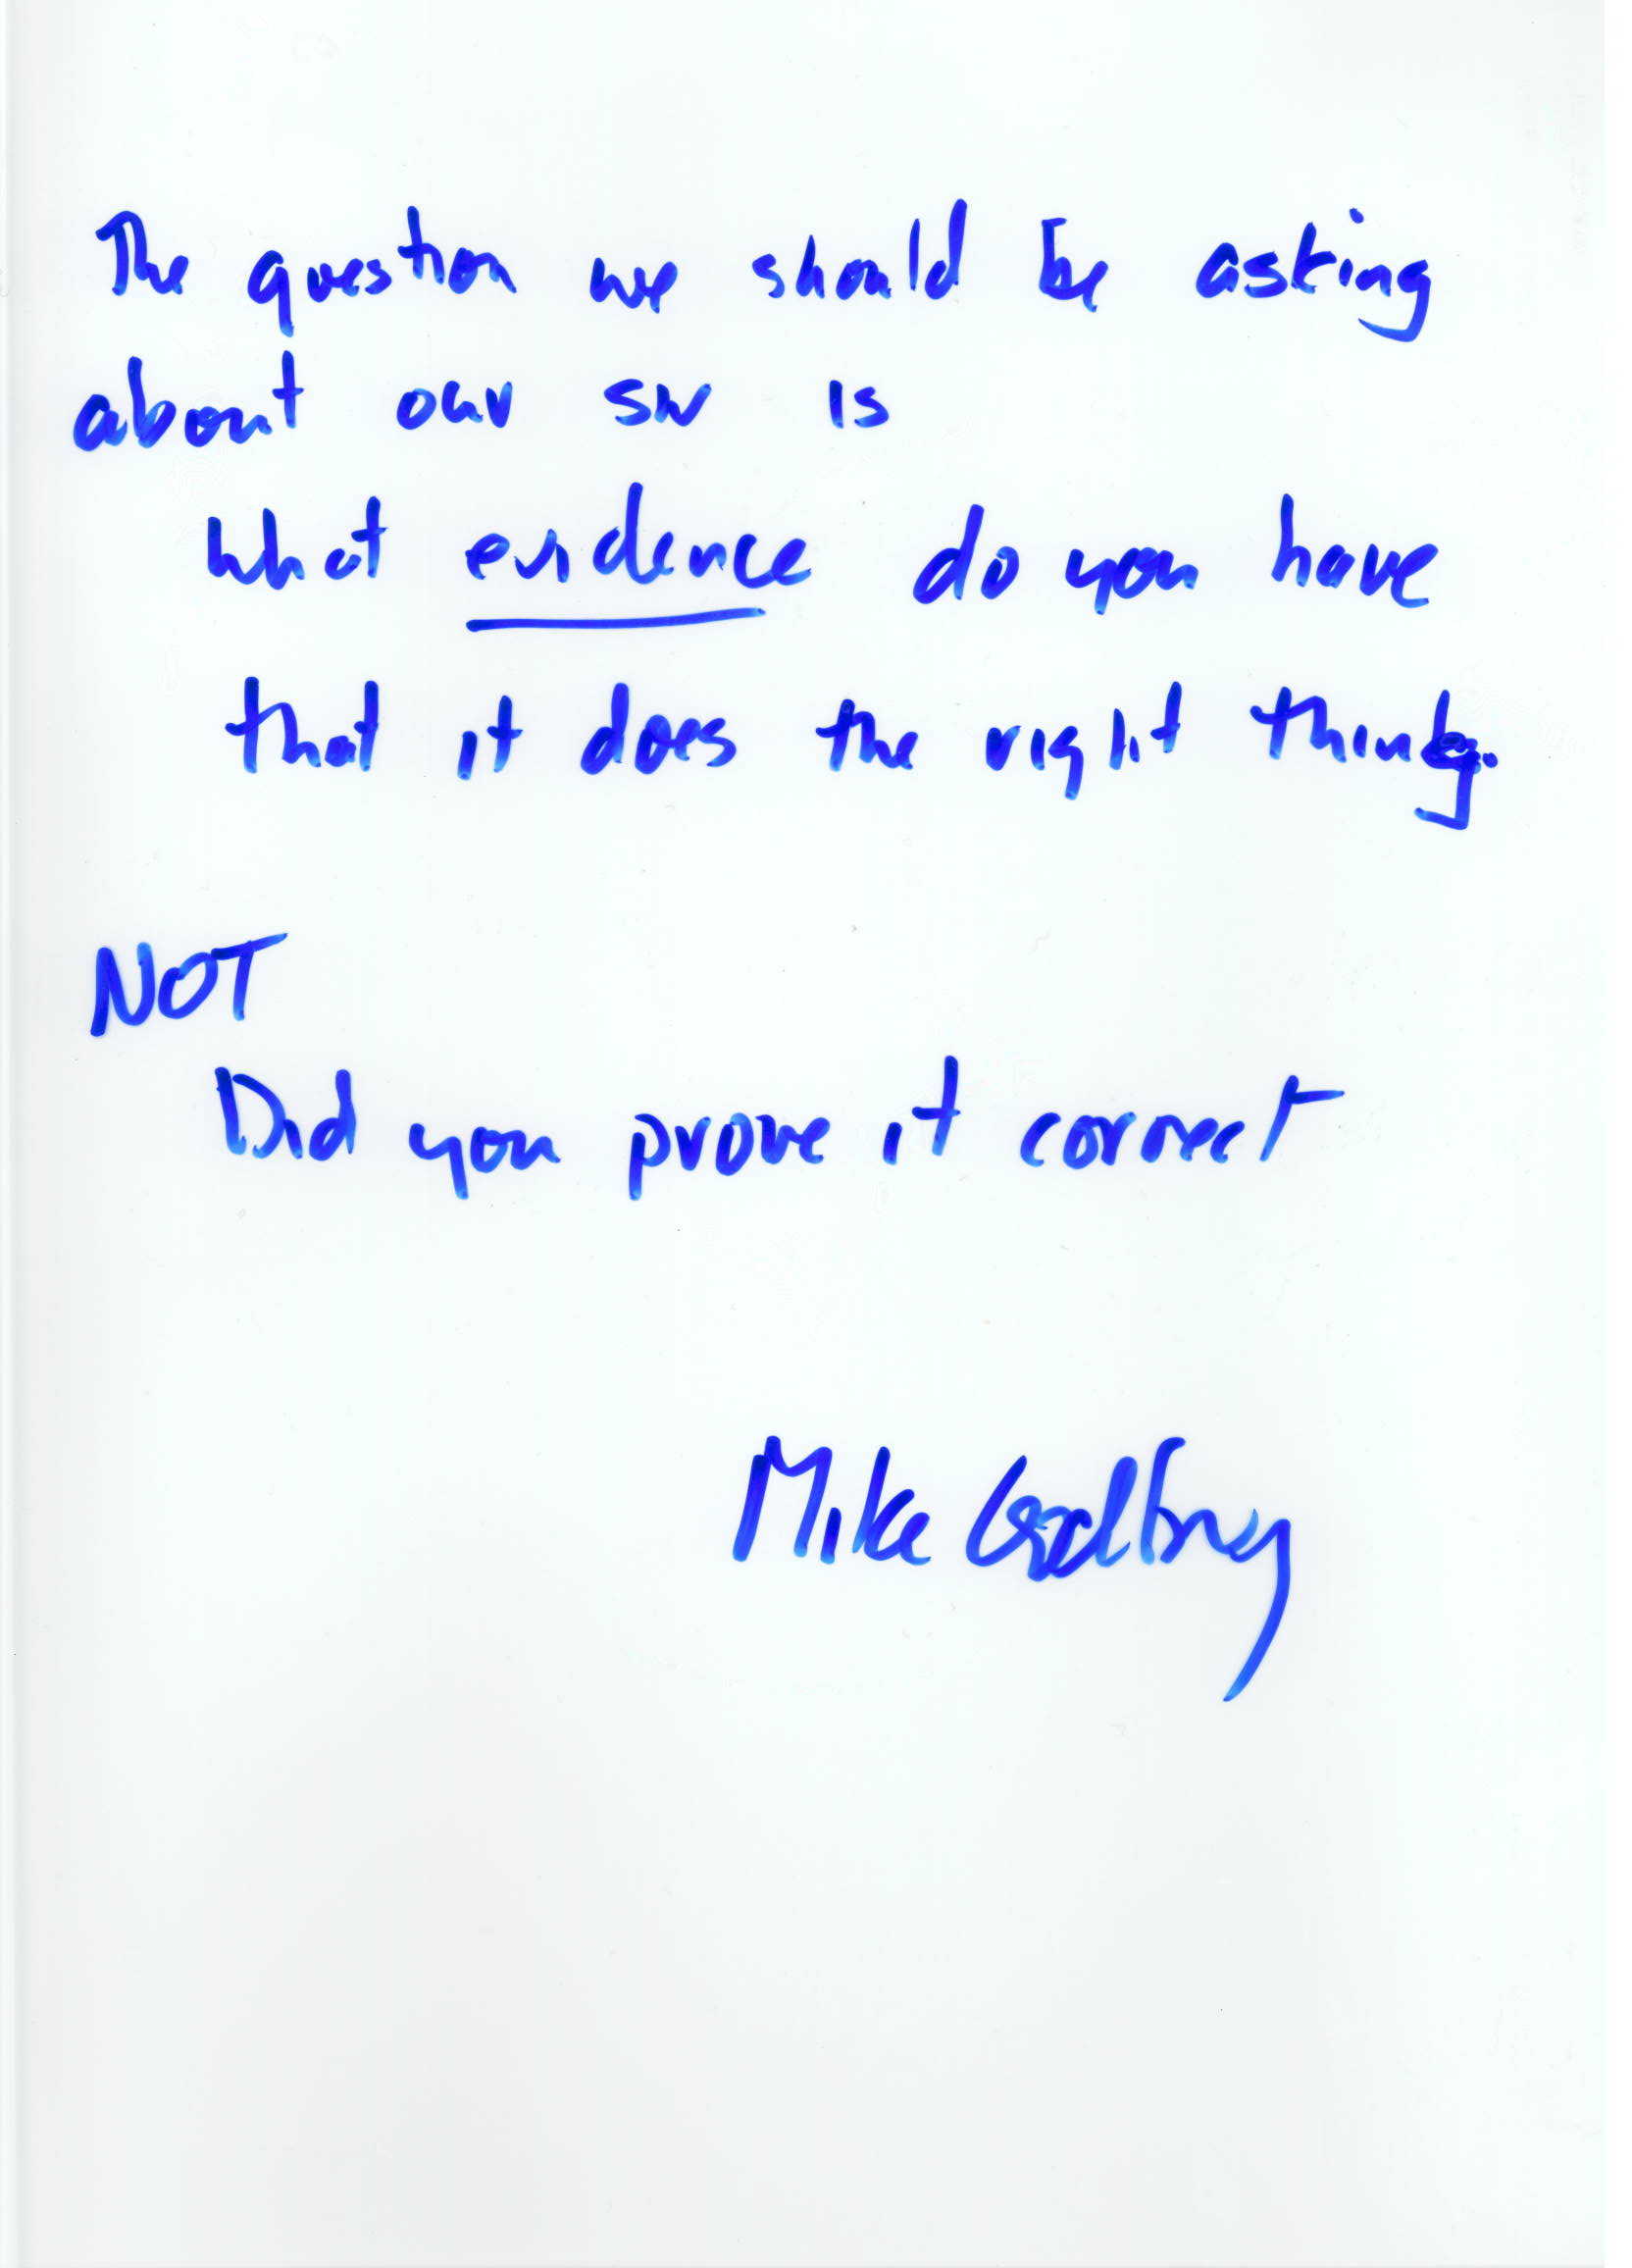 The question we should be asking
about our sw is
what evidence do you have
that it does the right thing.
NOT
Did you prove it correct
Mike Godfrey